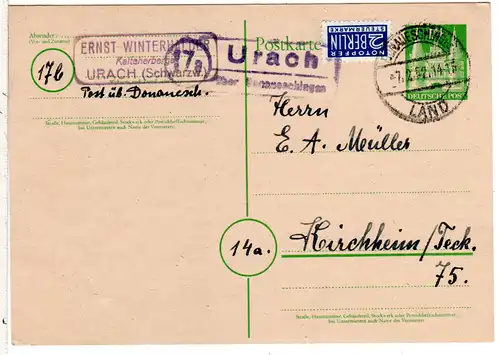 Absender:
ERNST WINTERHALDER
Kalteherberg
URACH (Schwarzw.)
17b
Post üb. Donauesch.
Straße, Hausnummer, Gebäudeteil, Stockwerk oder Postschließfachnummer,
bei Untermietern auch Name des Vermieters.
17b
Urach
über Donaueschingen
Postkarte
NOTOPFER
2 BERLIN
STEUERMARKE
LAND
DEUTSCHE POST
Herrn
E. A. Müller
14a.
Kirchheim/Teck.
75.
Straße, Hausnummer, Gebäudeteil, Stockwerk oder Postschließfachnummer,
bei Untermietern auch Name des Vermieters